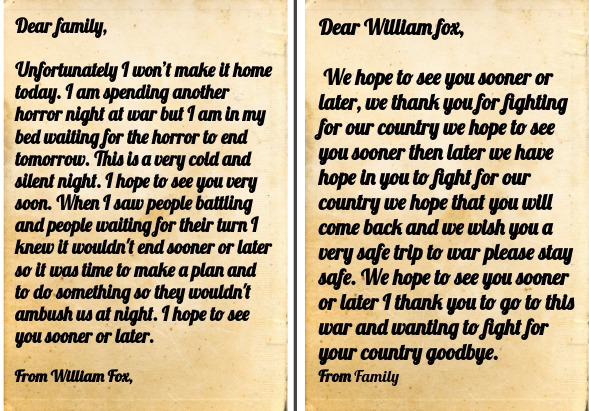 Dear family,
Unfortunately I won't make it home
today. I am spending another
horror night at war but I am in my
bed waiting for the horror to end
tomorrow. This is a very cold and
silent night. I hope to see you very
soon. When I saw people battling
and people waiting for their turn I
knew it wouldn't end sooner or later
so it was time to make a plan and
to do something so they wouldn't
ambush us at night. I hope to see
you sooner or later.
From William Fox,
Dear William fox,
We hope to see you sooner or
later, we thank you for fighting
for our country we hope to see
you sooner then later we have
hope in you to fight for our
country we hope that you will
come back and we wish you a
very safe trip to war please stay
safe. We hope to see you sooner
or later I thank you to go to this
war and wanting to fight for
your country goodbye.
From Family